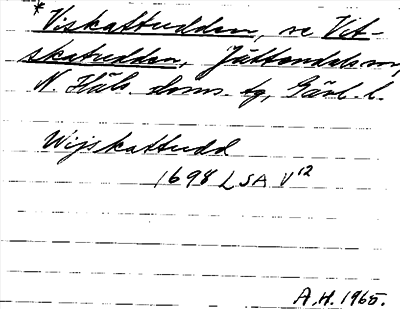 *Viskattudden, se Vit-
skatudden, Jättendals sn,
N. Häls. doms. tg, Gävl. l.
Wijskattudd
1698 LSA V12
A.H. 1965.